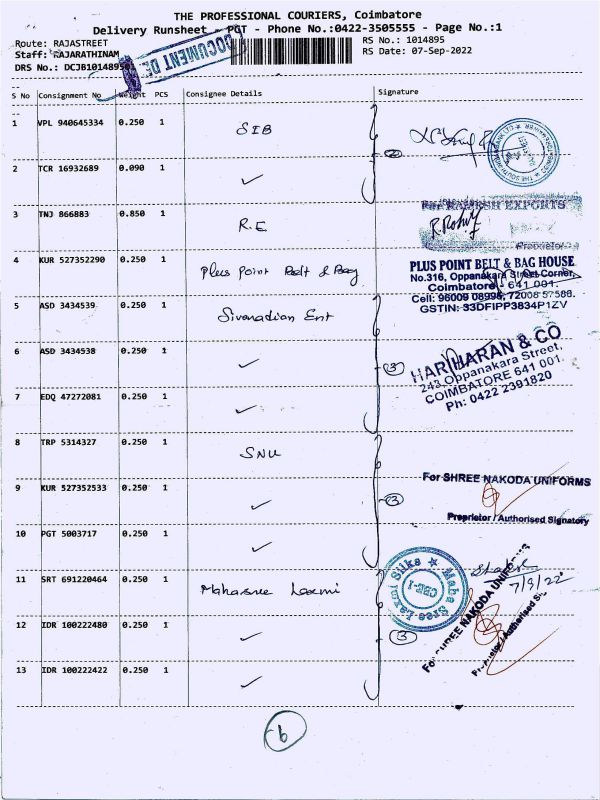 THE PROFESSIONAL COURIERS, Coimbatore
Delivery Runsheet - PGT - Phone No.:0422-3505555 - Page No.:1
Route: RAJASTREET
RS No.: 1014895
Staff: RAJARATHINAM
RS Date: 07-Sep-2022
DRS No.: DCJB101489501
DOCUMENT DE
S No Consignment No Weight PCS Consignee Details Signature
1 VPL 940645334 0.250 1 SIB
2 TCR 16932689 0.090 1 ✓
3 TNJ 866883 0.850 1 R.E
For RAMESH EXPORTS
Proprietor
4 KUR 527352290 0.250 1 Plus Point Belt & Bag
PLUS POINT BELT & BAG HOUSE
No.316, Oppanakara Street Corner,
Coimbatore - 641 001.
Cell: 96009 08998, 72008 57588.
GSTIN: 33DFIPP3834P1ZV
5 ASD 3434539 0.250 1 Sivanadian Ent
6 ASD 3434538 0.250 1 ✓ 3
HARIHARAN & CO
243, Oppanakara Street,
COIMBATORE 641 001.
Ph: 0422 2391820
7 EDQ 47272081 0.250 1 ✓
8 TRP 5314327 0.250 1 SNU
For SHREE NAKODA UNIFORMS
9 KUR 527352533 0.250 1 ✓ 3
Proprietor / Authorised Signatory
10 PGT 5003717 0.250 1 ✓
11 SRT 691220464 0.250 1 Mahasree Laxmi
Maha Sree Laxmi Silks
CBE-1
7/9/22
For SHREE NAKODA UNIFORMS
Proprietor / Authorised
12 IDR 100222480 0.250 1 ✓ 3
13 IDR 100222422 0.250 1 ✓
6